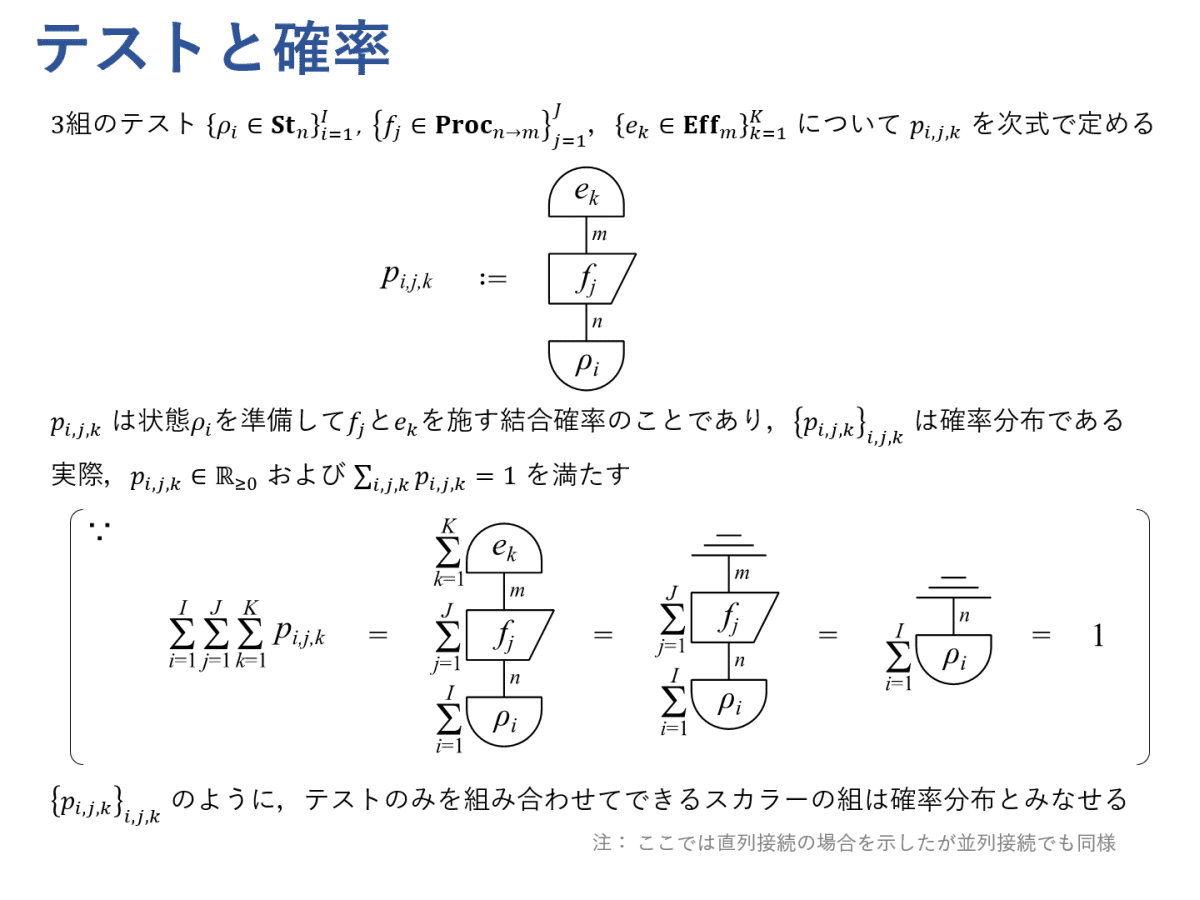 テストと確率
3組のテスト {ρᵢ ∈ Stₙ}ᴵᵢ₌₁, {fⱼ ∈ Procₙ→ₘ}ᴶⱼ₌₁, {eₖ ∈ Effₘ}ᴷₖ₌₁ について p_{i,j,k} を次式で定める
p_{i,j,k} := eₖ m fⱼ n ρᵢ
p_{i,j,k} は状態ρᵢを準備してfⱼとeₖを施す結合確率のことであり, {p_{i,j,k}}_{i,j,k} は確率分布である
実際, p_{i,j,k} ∈ ℝ≥0 および ∑_{i,j,k} p_{i,j,k} = 1 を満たす
∵
∑_{i=1}^{I} ∑_{j=1}^{J} ∑_{k=1}^{K} p_{i,j,k} = ∑_{k=1}^{K} eₖ m ∑_{j=1}^{J} fⱼ n ∑_{i=1}^{I} ρᵢ = m ∑_{j=1}^{J} fⱼ n ∑_{i=1}^{I} ρᵢ = n ∑_{i=1}^{I} ρᵢ = 1
{p_{i,j,k}}_{i,j,k} のように, テストのみを組み合わせてできるスカラーの組は確率分布とみなせる
注： ここでは直列接続の場合を示したが並列接続でも同様